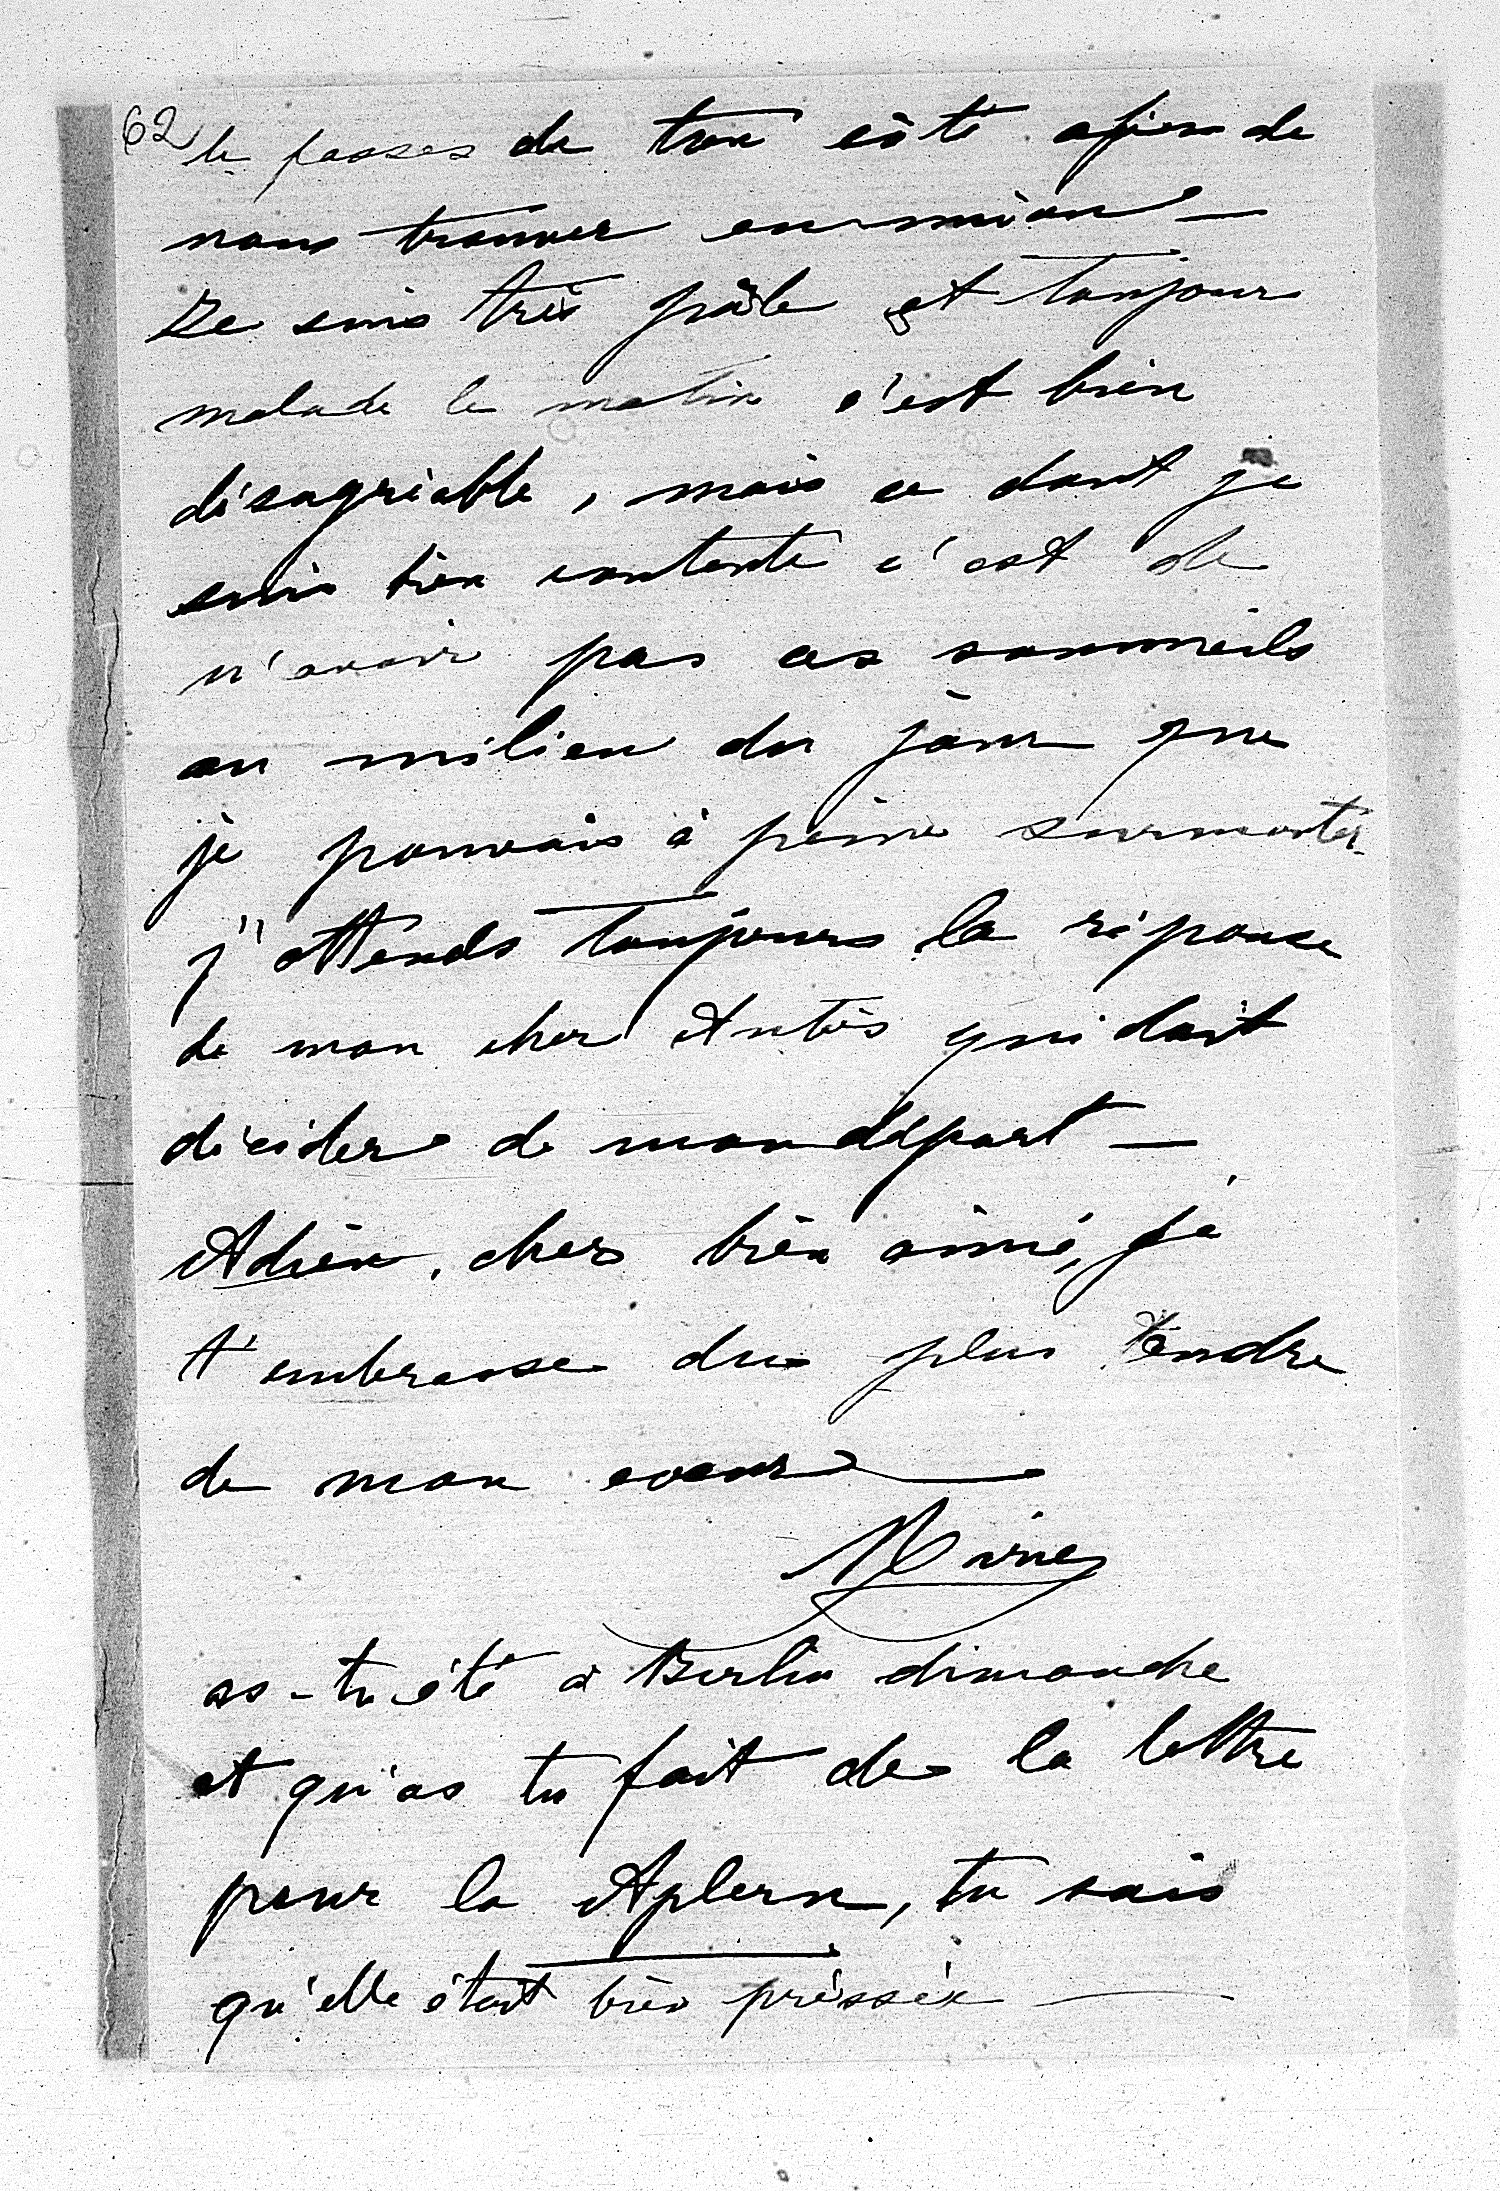 62
le passes de ton côté afin de
nous trouver en union —
Je suis très pâle et toujours
malade le matin c'est bien
désagréable, mais ce dont je
suis bien contente c'est de
n'avoir pas ces sommeils
au milieu du jour que
je pouvais à peine surmonter
j'attends toujours la réponse
de mon cher qui doit
décider de mon départ —
Adieu, cher bien aimé, je
t'embrasse du plus tendre
de mon coeur —
as-tu été à Berlin dimanche
et qu'as tu fait de la lettre
pour la Aplern, tu sais
qu'elle était bien préssée —